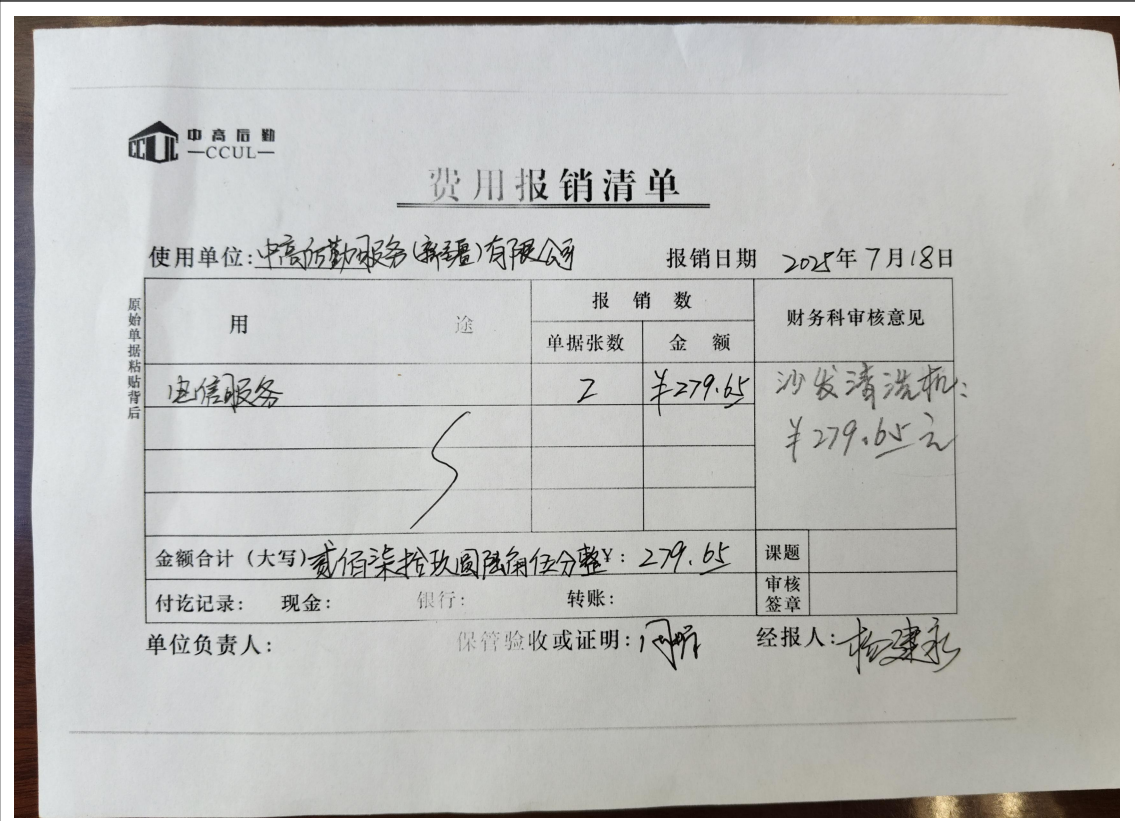 中高后勤
CCUL
费用报销清单
使用单位:中高后勤服务(新疆)有限公司 报销日期 2025年7月18日
原始单据粘贴背后
用 途 报 销 数 财务科审核意见
单据张数 金 额
电信服务 2 ¥279.65 沙发清洗机:
¥279.65元
金额合计(大写)贰佰柒拾玖圆陆角伍分整¥: 279.65 课题
付讫记录: 现金: 银行: 转账: 审核签章
单位负责人: 保管验收或证明: 经报人: 建永